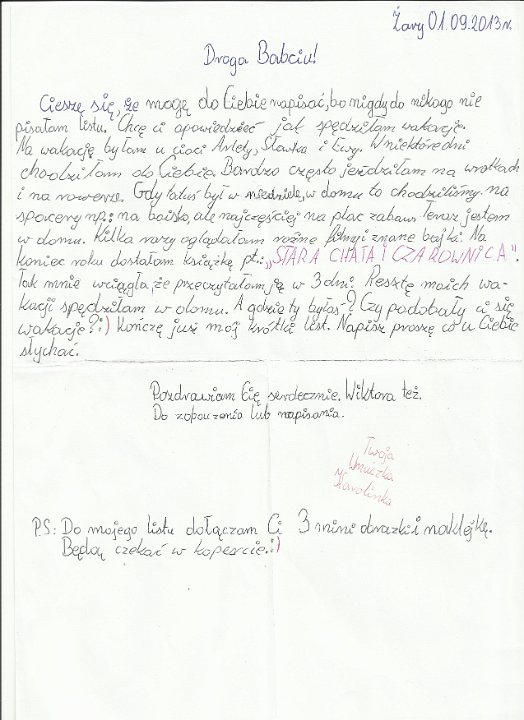 Żary 01.09.2013r.
Droga Babciu!
Cieszę się, że mogę do Ciebie napisać, bo nigdy do nikogo nie
pisałam listu. Chcę ci opowiedzieć jak spędziłam wakacje.
Na wakacje byłam u cioci Arlety, Sławka i Ewy. W niektóre dni
chodziłam do Ciebie. Bardzo często jeździłam na wrotkach
i na rowerze. Gdy tatuś był w niedziele, w domu to chodziliśmy na
spacery np.: na boisko, ale najczęściej na plac zabaw. Teraz jestem
w domu. Kilka razy oglądałam różne filmy i znane bajki. Na
koniec roku dostałam książkę pt.: „STARA CHATA I CZAROWNICA".
Tak mnie wciągła, że przeczytałam ją w 3 dni. Resztę moich wa-
kacji spędziłam w domu. A gdzie ty byłaś? Czy podobały ci się
wakacje? :) Kończę już mój krótki list. Napisz proszę co u Ciebie
słychać.
Pozdrawiam Cię serdecznie. Wiktora też.
Do zobaczenia lub napisania.
Twoja
Wnuczka
Karolinka
PS: Do mojego listu dołączam Ci 3 mini obrazki i naklejkę.
Będą czekać w kopercie. :)